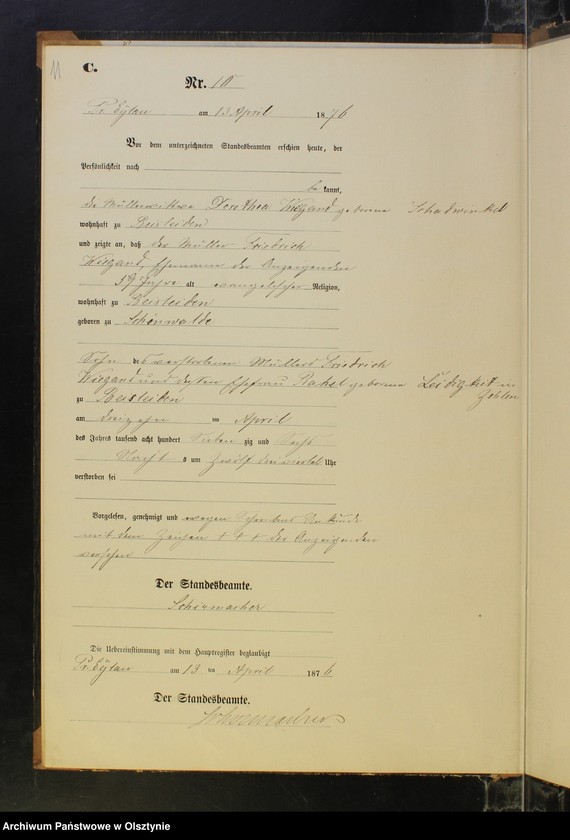 11
C.
Nr. 10
Pr. Eylau am 13 April 1876
Vor dem unterzeichneten Standesbeamten erschien heute, der
Persönlichkeit nach
be kannt,
die Müllerwittwe Dorothea Wiegand geborene Schadwinkel
wohnhaft zu Beisleiden
und zeigte an, daß der Müller Friedrich
Wiegand, Ehemann der Anzeigenden
59 Jahre alt evangelischer Religion,
wohnhaft zu Beisleiden
geboren zu Schönwalde
Sohn des verstorbenen Müllers Friedrich
Wiegand und dessen Ehefrau Rahel geborene Leidigkeit in
zu Beisleiden
am dreizehn ten April
des Jahres tausend acht hundert Sieben zig und Sechs
Nachts um zwölf Uhr
verstorben sei
Vorgelesen, genehmigt und wegen Schreibens Unkunde
mit dem Zeichen + + + der Anzeigenden
versehen
Der Standesbeamte.
Schirmacher
Die Uebereinstimmung mit dem Hauptregister beglaubigt
Pr. Eylau am 13 ten April 1876
Der Standesbeamte.
Schirmacher
Archiwum Państwowe w Olsztynie